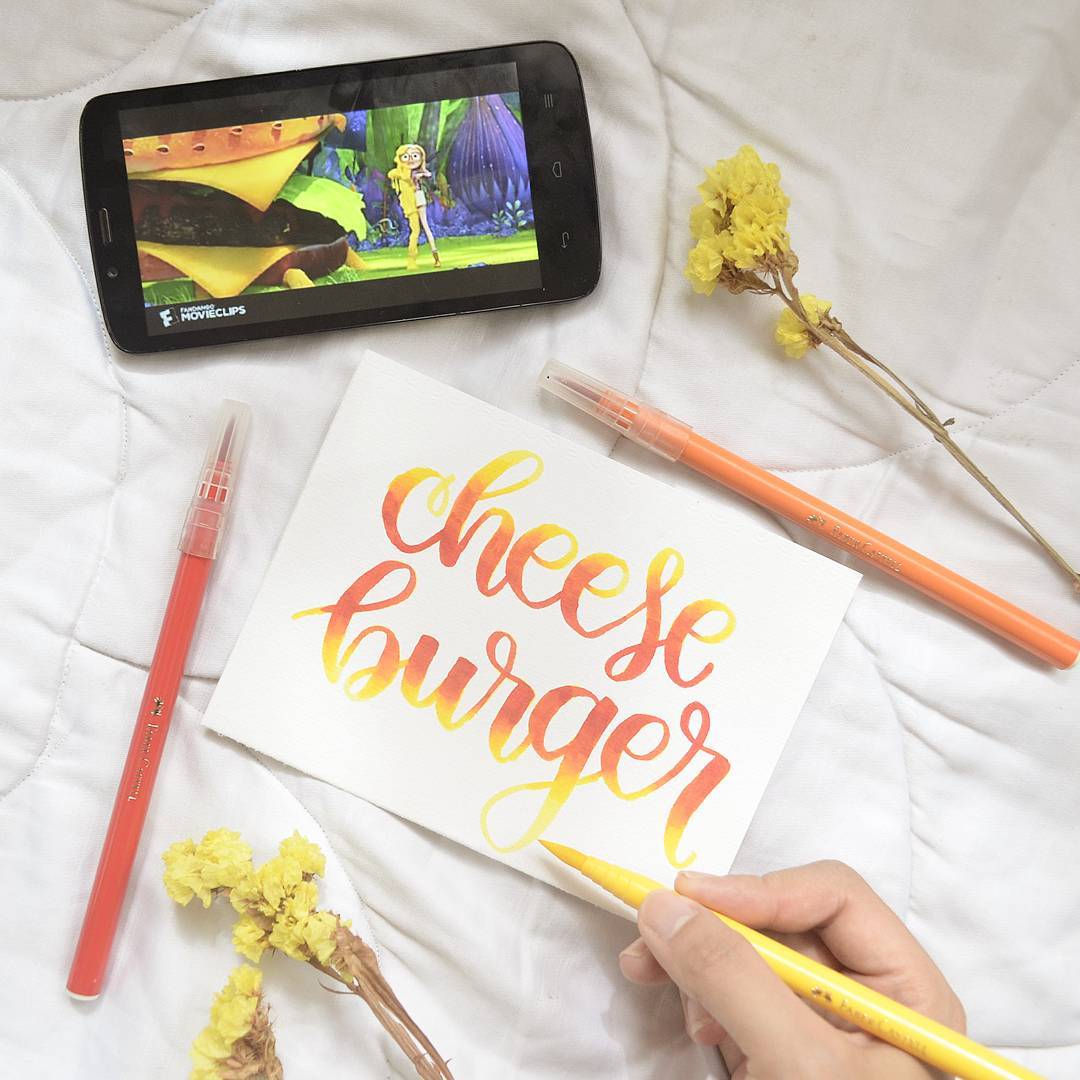 FANDANGO
MOVIECLIPS
cheese
burger
Faber-Castell
Faber-Castell
Faber-Castell